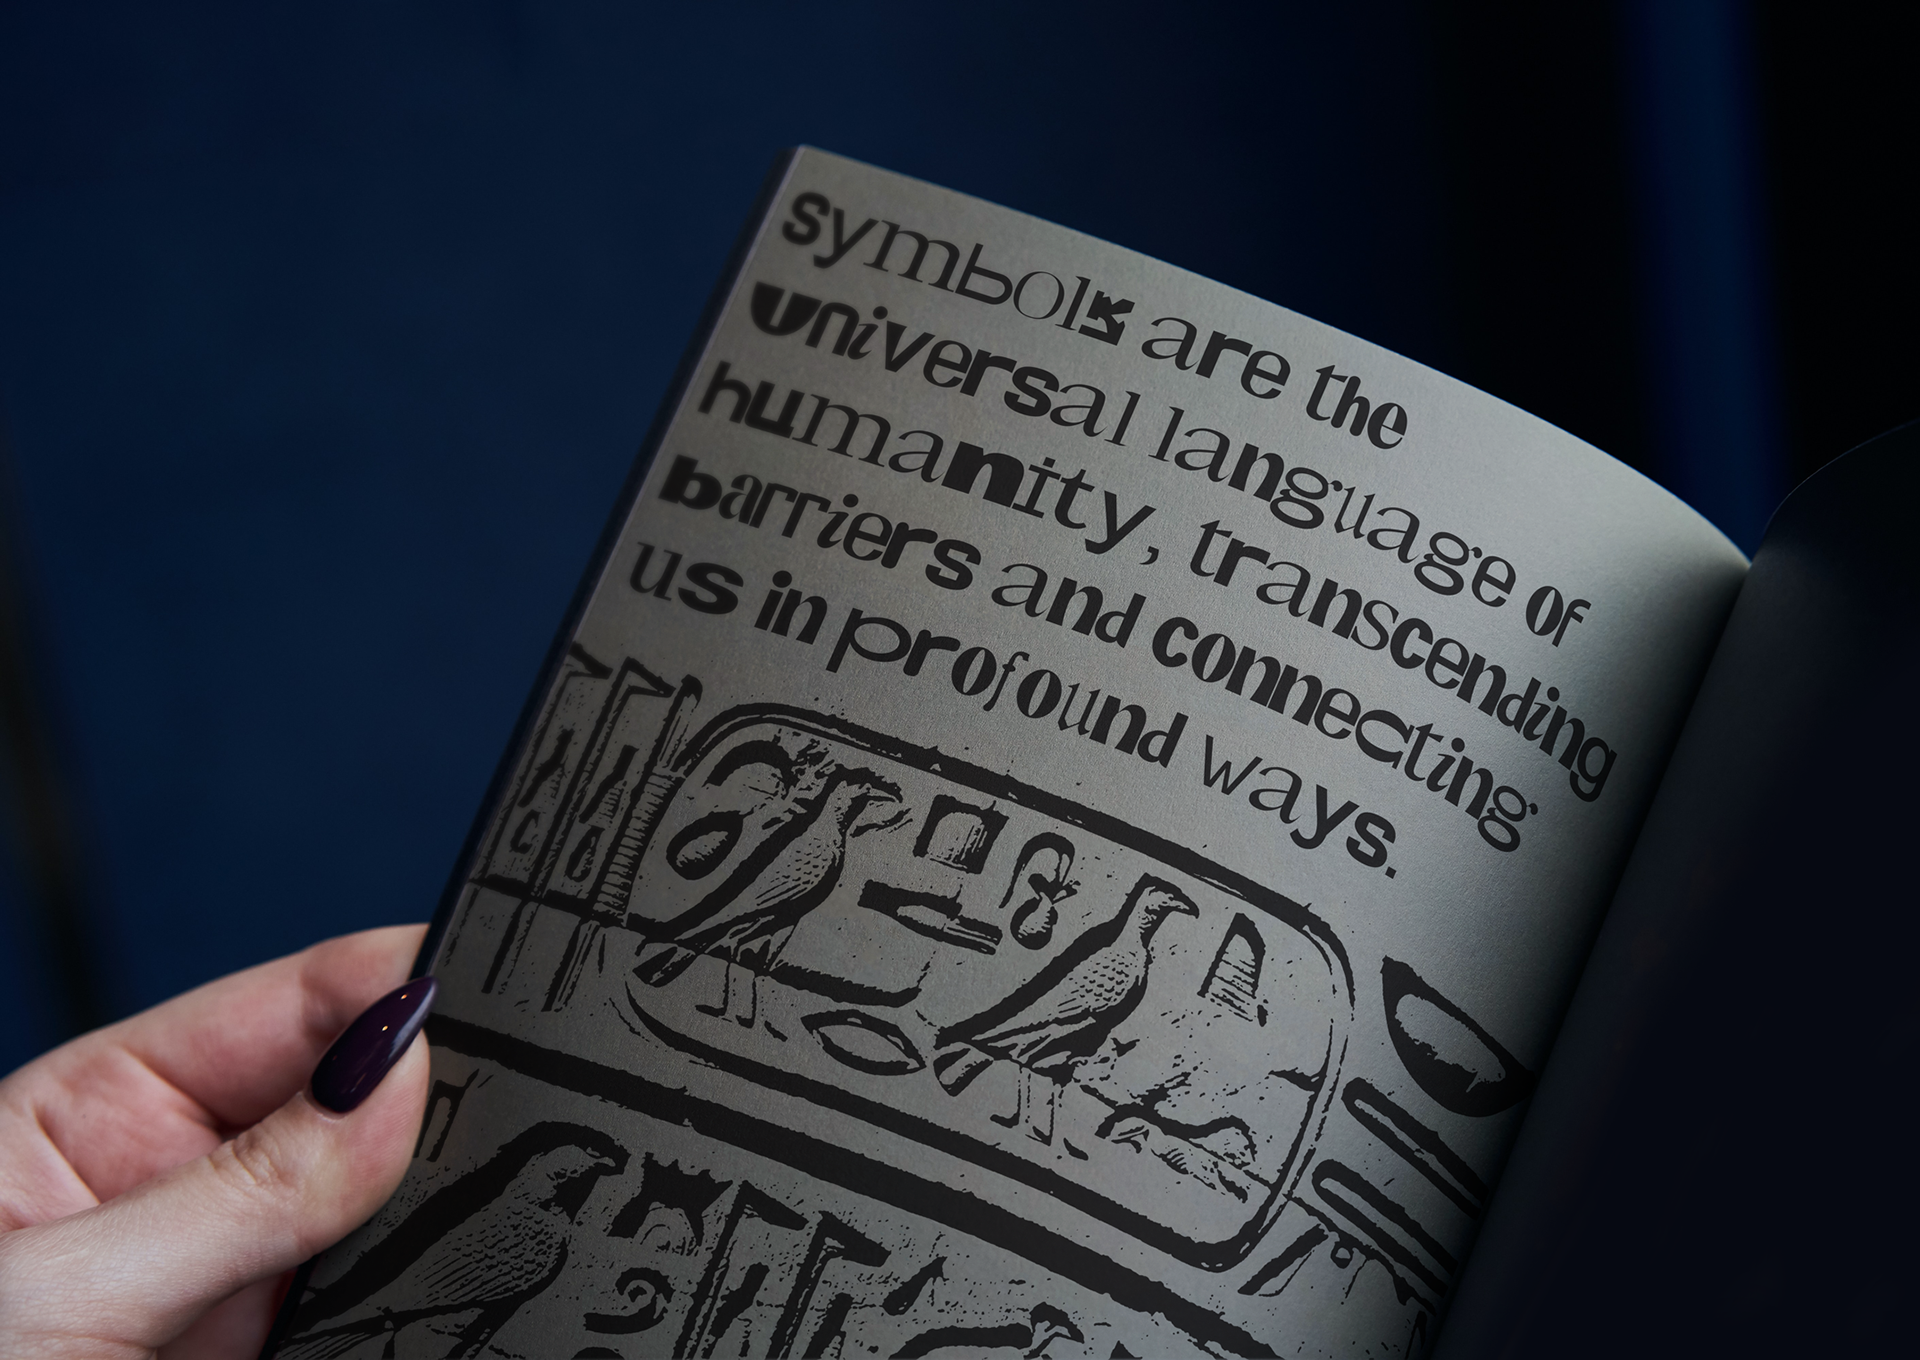 symbols are the
universal language of
humanity, transcending
barriers and connecting
us in profound ways.